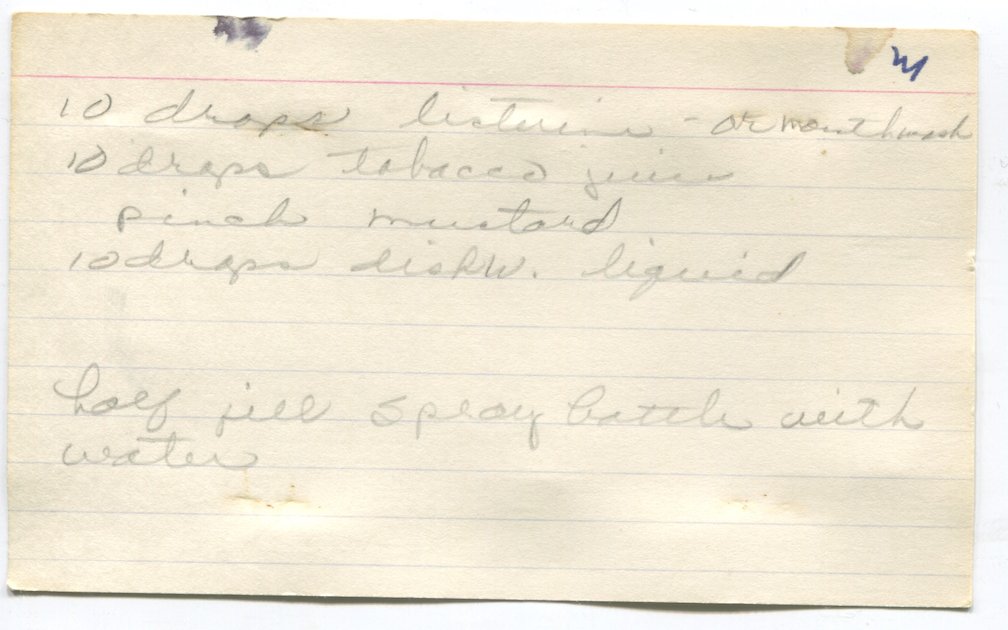 10 drops listerine - or mouthwash
10 drops tobacco juice
pinch mustard
10 drops dishw. liquid
half fill spray bottle with
water